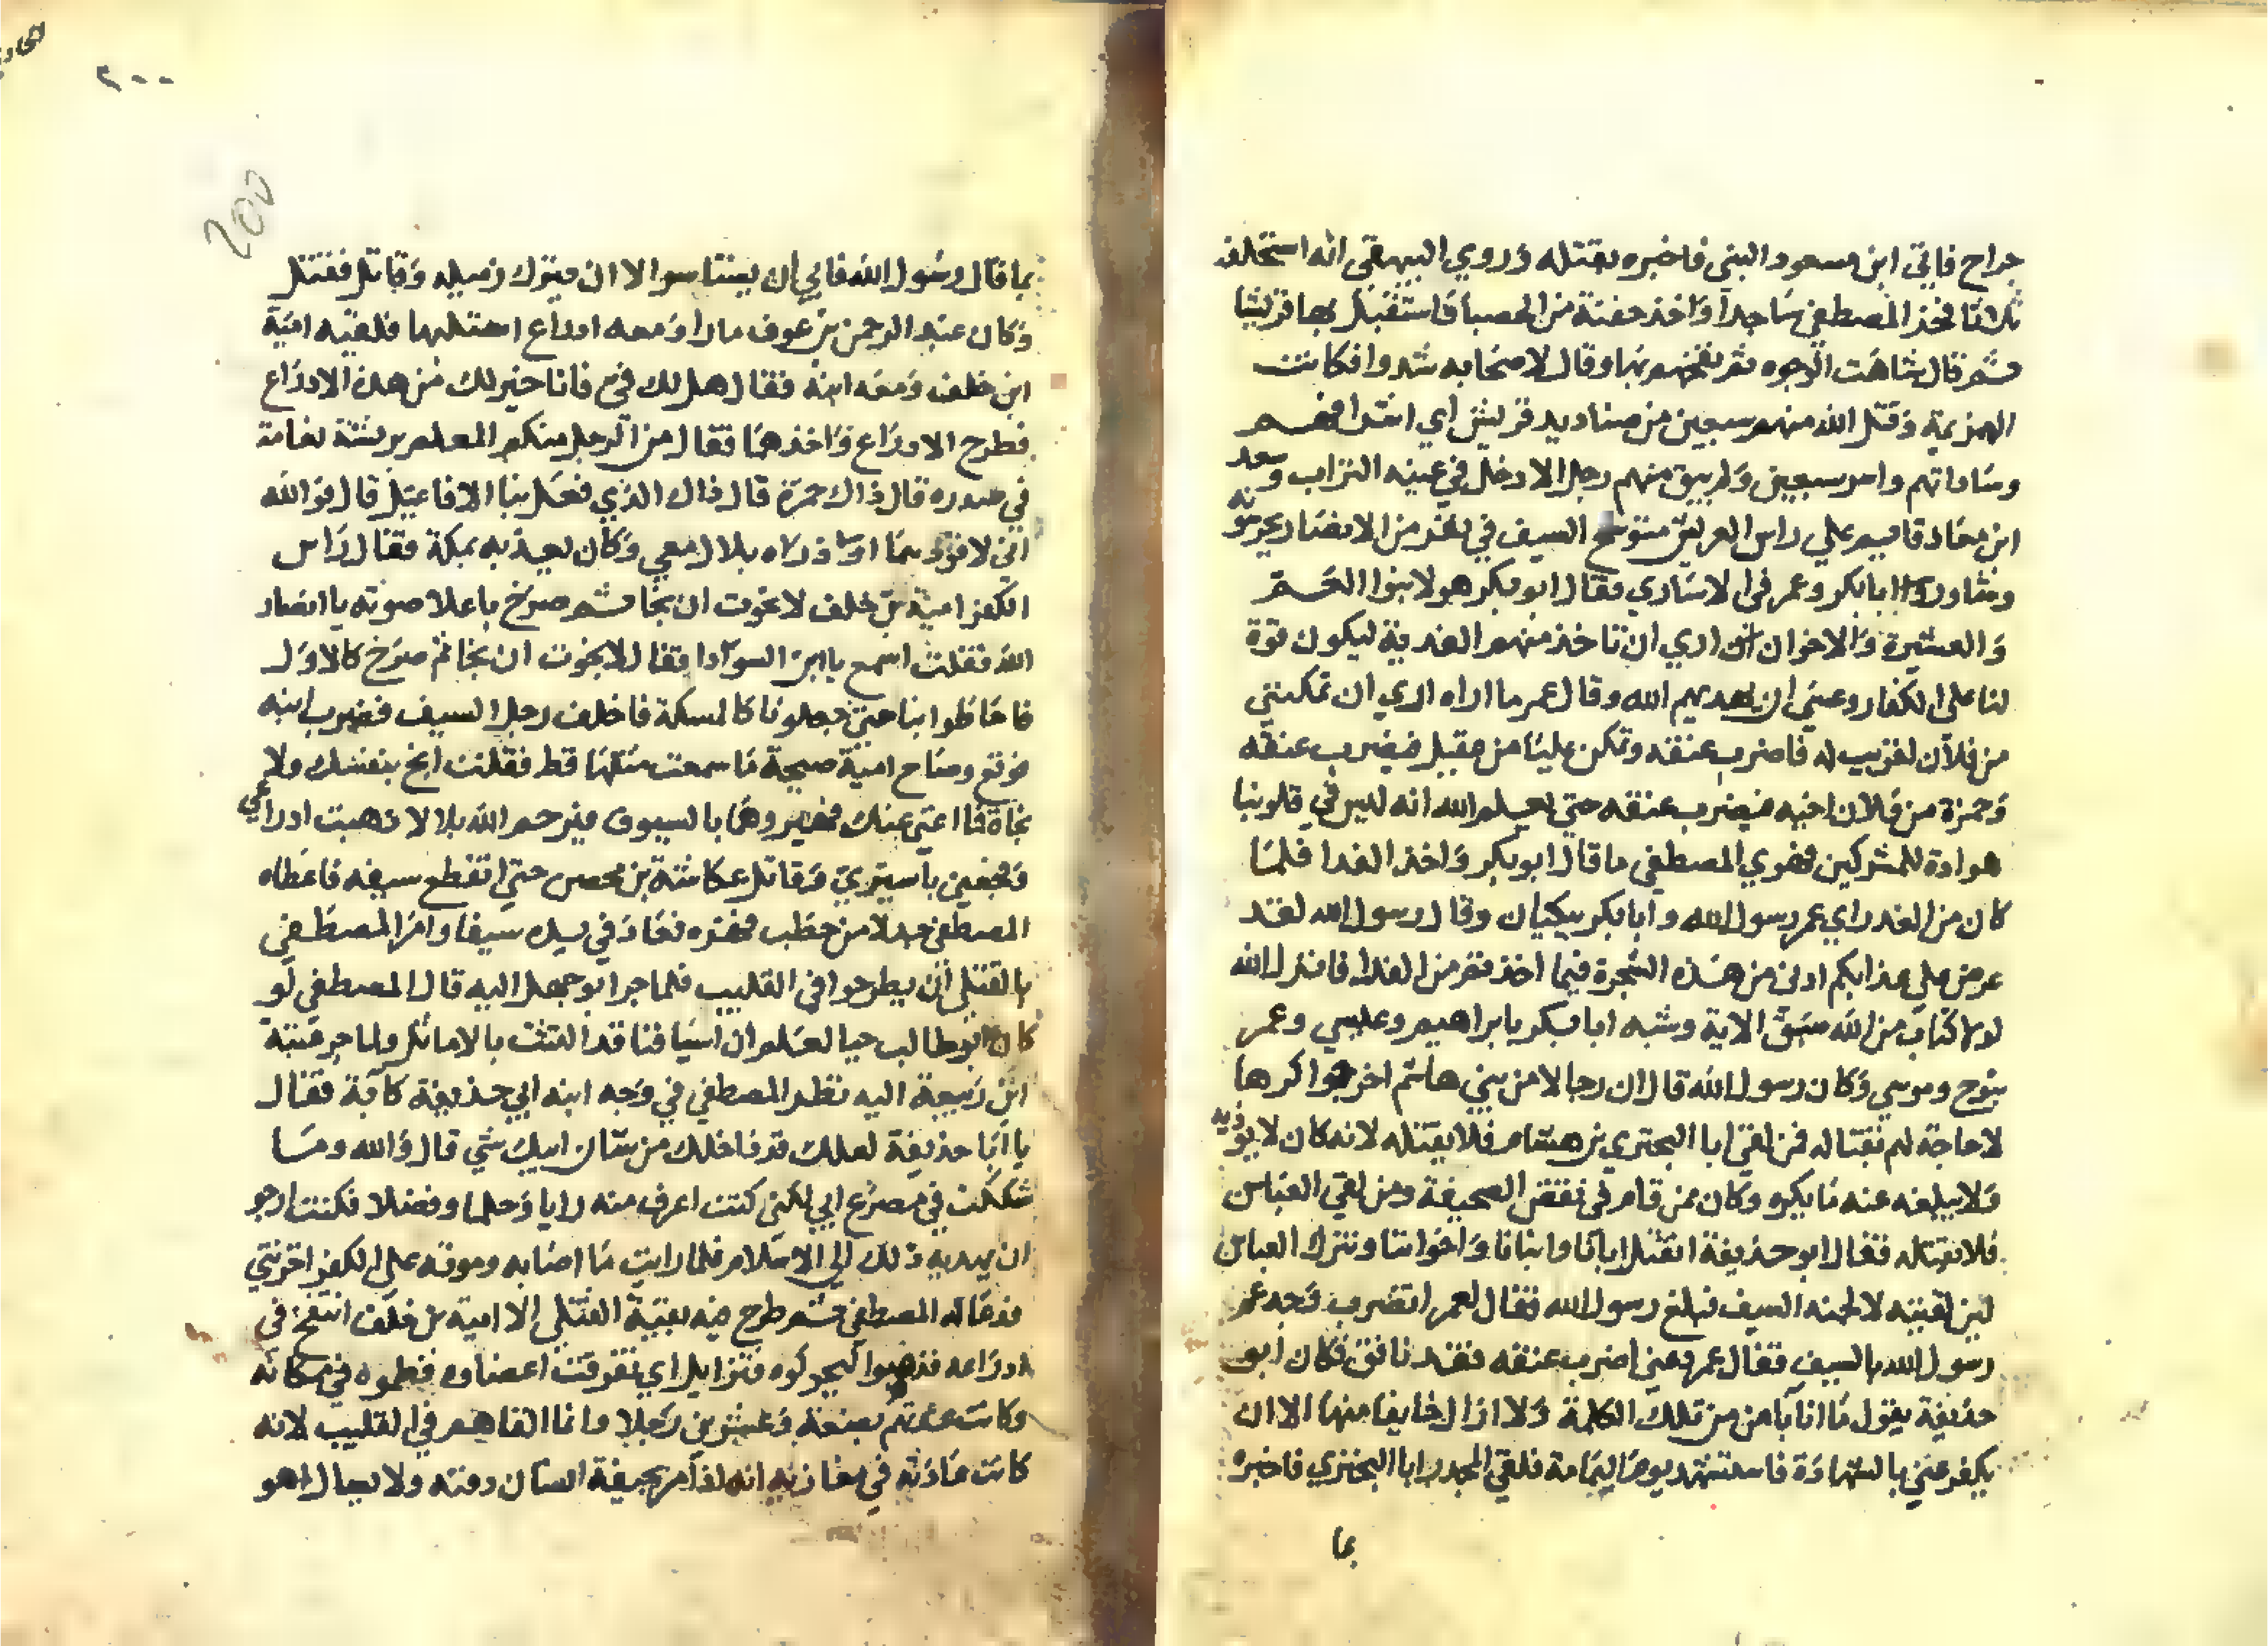 جراح فاتي ابن مسعود النبي فاخبره بقتله وروي البيهقي انه استحلفه
ثلاثا فخر المصطفي ساجدا واخذ حفنة من الحصبا فاستقبل بها قريشا
ثم قال شاهت الوجوه ثم نفخهم بها وقال لاصحابه شدوا فكانت
الهزيمة وقتل الله منهم سبعين من صناديد قريش اي اشرافهم
وساداتهم واسر سبعين ولم يبق منهم رجل الا دخل في عينيه التراب وسعد
ابن معاذ قايم علي راس العريش متوشح السيف في نفر من الانصار يحرسونه
وشاور ابا بكر وعمر في الاساري فقال ابو بكر هولا بنوا العم
والعشيرة والاخوان اني اري ان تاخذ منهم الفدية ليكون قوة
لنا علي الكفار وعسي ان يهديهم الله وقال عمر ما اراه اري ان تمكنني
من فلان لقريب له فاضرب عنقه وتمكن عليا من عقيل فيضرب عنقه
وحمزة من فلان اخيه فيضرب عنقه حتي يعلم الله انه ليس في قلوبنا
هوادة للمشركين فهوي المصطفي ما قال ابو بكر واخذ الفدا فلما
كان من الغد راي عمر رسول الله وابا بكر يبكيان وقال رسول الله لقد
عرض علي عذابكم ادني من هذه الشجرة فيما اخذتم من الفدا فانزل الله
لولا كتاب من الله سبق الاية وشبه ابا بكر بابراهيم وعيسي وعمر
بنوح وموسي وكان رسول الله قال ان رجالا من بني هاشم اخرجوا كرها
لا حاجة لهم بقتاله فمن لقي ابا البحتري بن هشام فلا يقتله لانه كان لا يوذيه
ولا يبلغه عنه ما يكره وكان ممن قام في نقض الصحيفة ومن لقي العباس
فلا يقتله فقال ابو حذيفة انقتل اباانا وابنانا واخواننا ونترك العباس
لين لقيته لالجمنه السيف فبلغ رسول الله فقال لعمر ايضرب وجه عم
رسول الله بالسيف فقال عمر دعني اضرب عنقه فقد نافق فكان ابو
حذيفة يقول ما انا بامن من تلك الكلمة ولا ازال خايفا منها الا ان
يكفر عني بالشهادة فاستشهد يوم اليمامة فلقي المجدر ابا البحتري فاخبره
بما
٢٠٠
200
بما قال رسول الله فابي ان يستاسر الا ان يترك زميله وقاتل فقتل
وكان عبد الرحمن بن عوف مارا ومعه ادراع استلبها فلقيه امية
ابن خلف ومعه ابنه فقال هل لك في فانا خير لك من هذه الادراع
فطرح الادراع واخذهما فقال من الرجل منكم المعلم بريشة نعامة
في صدره قال ذاك حمزة قال ذاك الذي فعل بنا الافاعيل قال فوالله
اني لاقودهما اذ راه بلال معي وكان يعذبه بمكة فقال راس
الكفر امية بن خلف لا نجوت ان نجا ثم صرخ باعلا صوته يا انصار
الله فقلت اسمع يا ابن السودا فقال لا نجوت ان نجا ثم صرخ كالاول
فاحاطوا بنا حتي جعلونا كالمسكة فاخلف رجل السيف فضرب ابنه
فوقع وصاح امية صيحة ما سمعت مثلها قط فقلت انج بنفسك ولا
نجاة فما اغني عنك فهبروهما بالسيوف فيرحم الله بلالا ذهبت ادراعي
وفجعني باسيري وقاتل عكاشة بن محصن حتي انقطع سيفه فاعطاه
المصطفي جدلا من حطب فهزه فعاد في يده سيفا وامر المصطفي
بالقتلي ان يطرحوا في القليب فلما جر ابو جهل اليه قال المصطفي لو
كان ابو طالب حيا لعلم ان اسيافنا قد التثت بالاماثل ولما جر عتبة
ابن ربيعة اليه نظر المصطفي في وجه ابنه ابي حذيفة كابة فقال
يا ابا حذيفة لعلك قد داخلك من شان ابيك شي قال والله وما
شككت في مصرع ابي لكني كنت اعرف منه رايا وحلما وفضلا فكنت ارجو
ان يهديه ذلك الي الاسلام فلما رايت ما اصابه وموته علي الكفر احزنني
فدعا له المصطفي ثم طرح فيه بقية القتلي الا امية بن خلف انتفخ في
ادراعه فذهبوا ليحركوه فتزايل اي تفرقت اعضاوه فطموه في مكانه
وكانت عدتهم بضعة وعشرين رجلا وانما القاهم في القليب لانه
كانت عادته في مغازيه انه اذا مر بجيفة انسان دفنه ولا يسال اهو